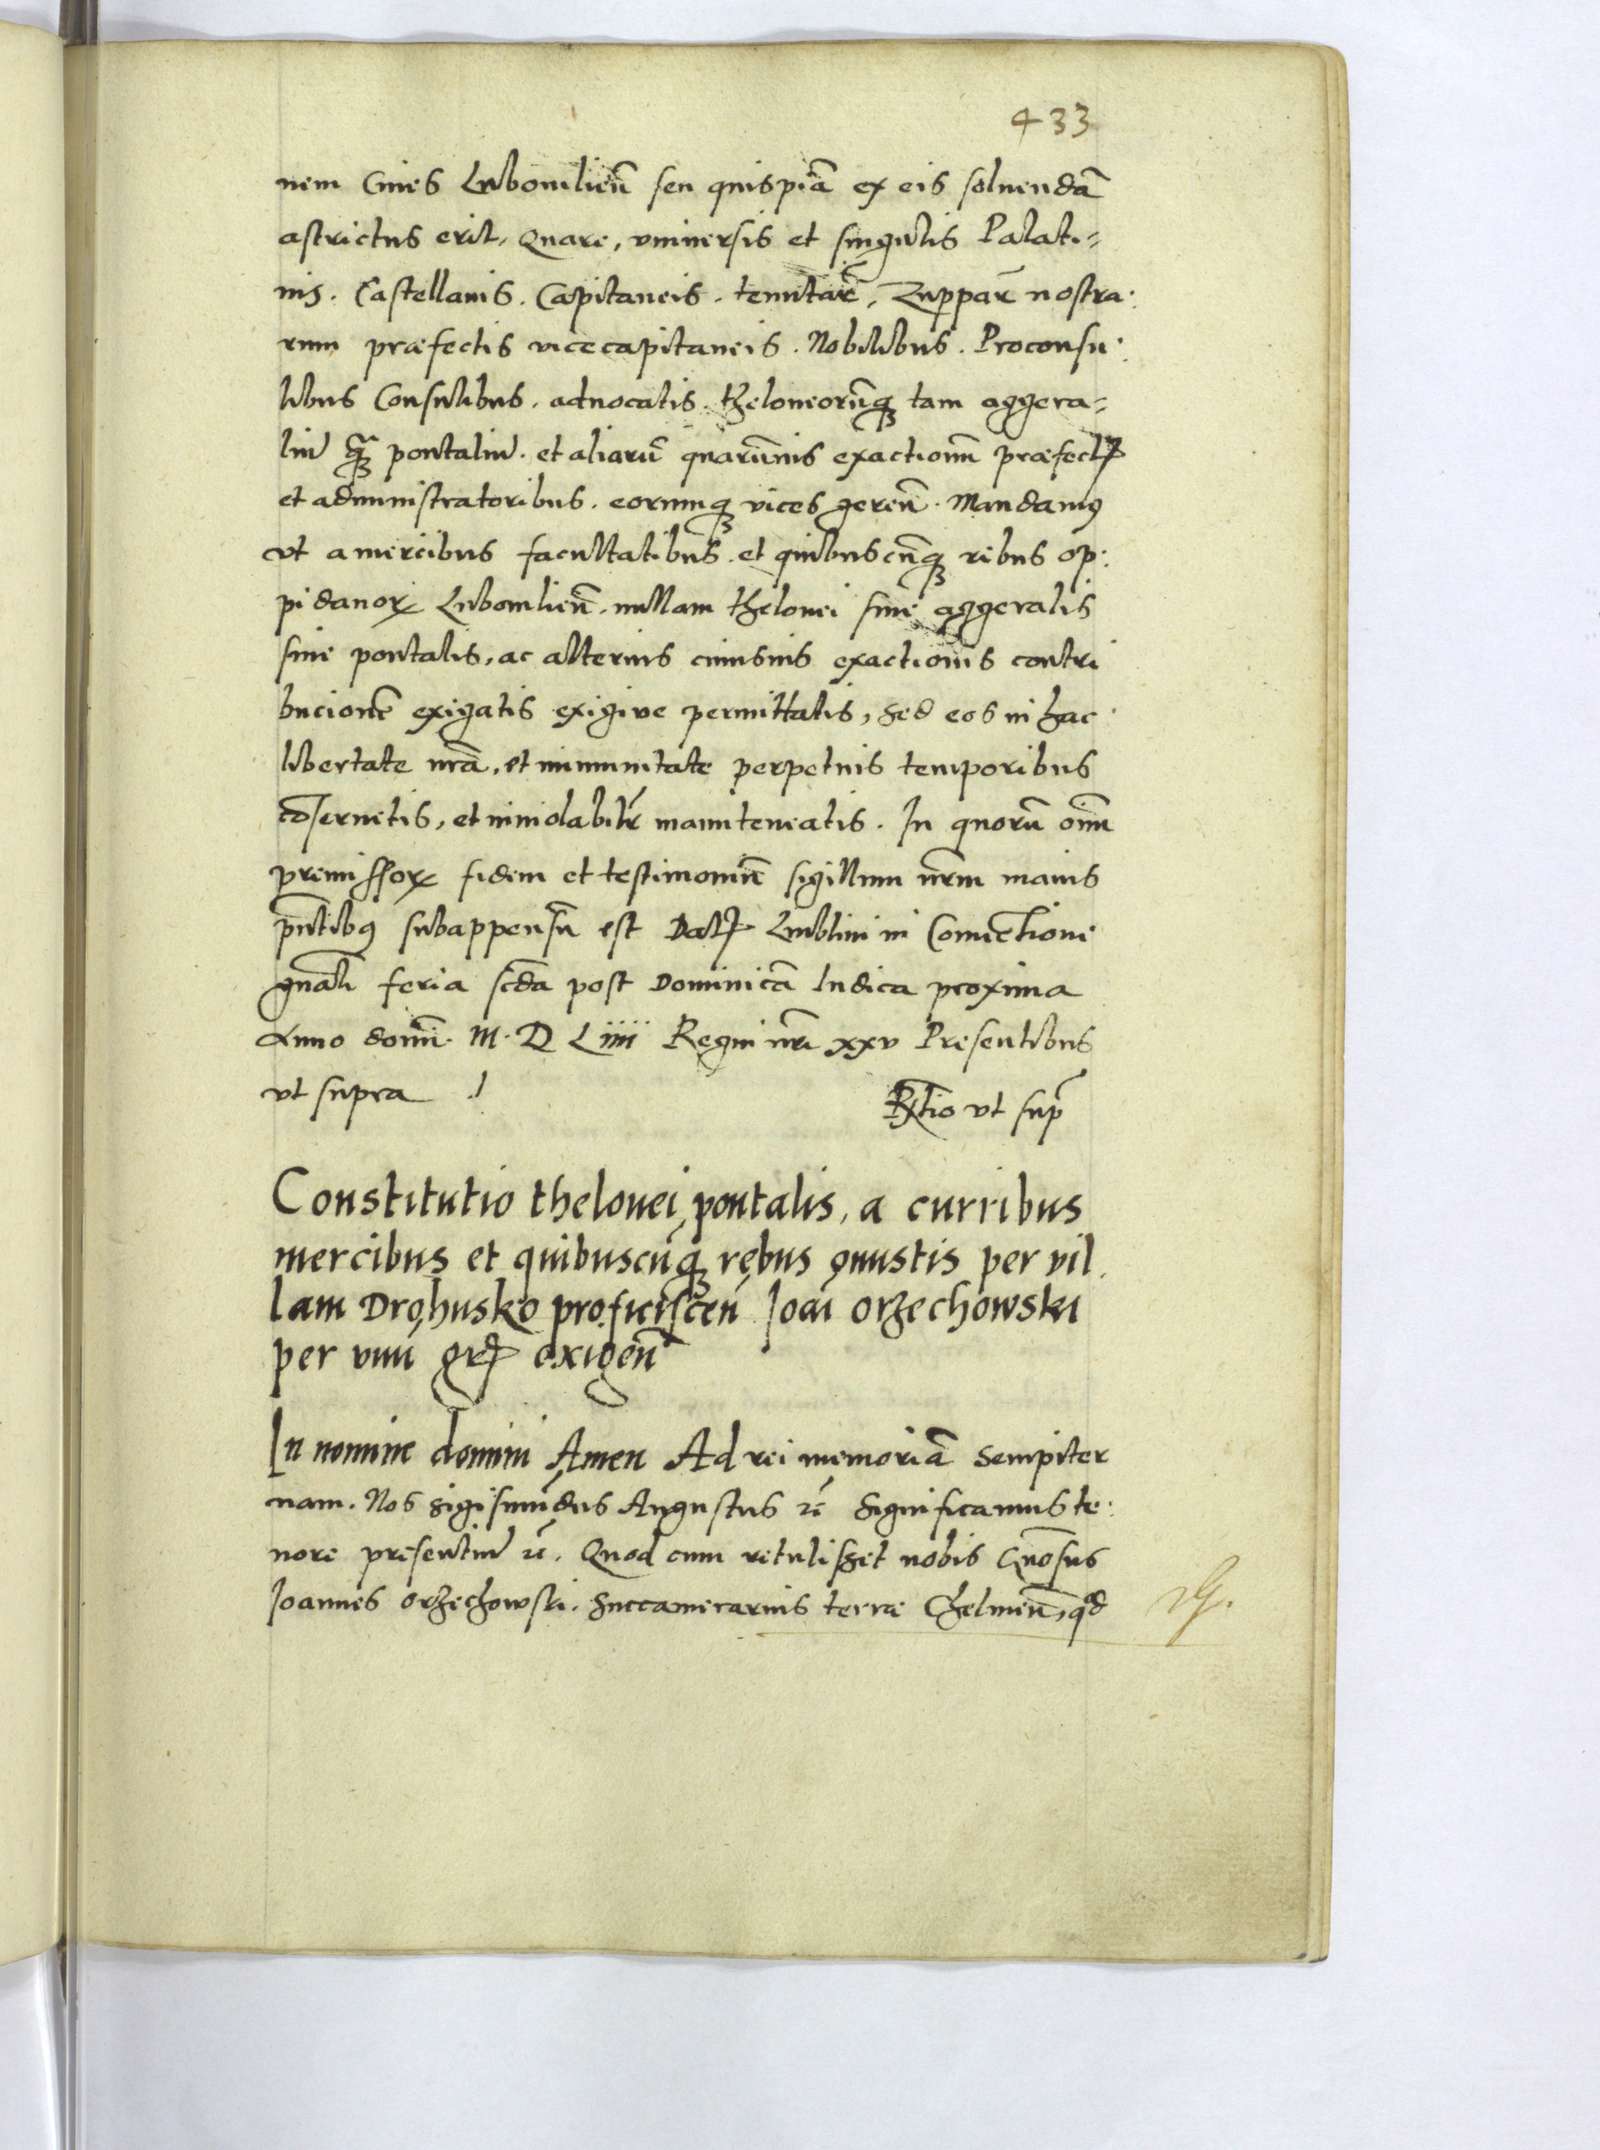 433
nem Cives Lubomlień seu quispiā ex eis solvendā
astrictus erit, Quare, universis et singulis Palati=
nis. Castellanis. Capitaneis. tenutar̄. Zuppar̄ nostra
rum præfectis vicecapitaneis. Nobilibus. Proconsu
libus Consulibus. advocatis. theloneorūq; tam aggera=
liū q̄; pontaliū. et aliarū quarūvis exactionum præfectꝭ
et administratoribus. eorumq; vices gereñ. Mandamꝰ
vt a mercibus facultatibus. et quibuscūq; rebus op
pidanoꝝ Lubomlień. nullam thelonei sive aggeralis
sive pontalis, ac alterius cuiusvis exactionis contri
bucionē exigatis exigive permittatis, Sed eos in hac
libertate nrā, et immunitate perpetuis temporibus
cōservetis, et inviolabilr̄ manuteneatis. In quorū oīm
premissoꝝ fidem et testimoniū sigillum nrm̄ maius
pn̄tibꝰ subappensū est Datꝭ Lublini in Conuectione
gnali feria scda post Dominicā Iudica proxima
Anno domī. M. D Liiii Regni nrī xxv Presentibus
vt supra
Rltio vt sup̄
Constitutio thelonei pontalis, a curribus
mercibus et quibuscūq; rebus onustis per vil
lam Drohusko proficisceń Ioāi Orzechowski
per vnū grꝭ exigeń
In nomine domini Amen Ad rei memoriā sempiter
nam. Nos Sigismūdus Augustus rc̄ Significamus te
nore presentiū rc̄. Quod cum retulisset nobis Gnosus
Ioannes Orzechowski. Succamerarius terræ Chelmeñ, qd